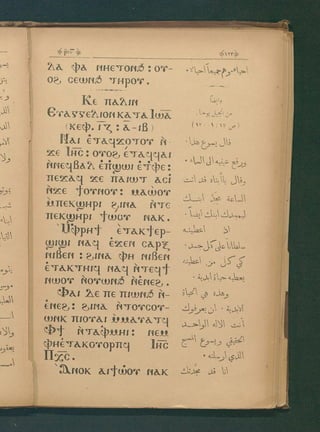 ٭ ⲣⲕⲅ ٭ ٭ ١٢٣ ٭
ⲗⲁ ⲫⲁ ⲛⲏⲉⲧⲟⲛϧ : ⲟⲩ-
ⲟϩ ⲥⲉⲱⲛϧ ⲧⲏⲣⲟⲩ.
Ⲕⲉ ⲡⲁⲗⲓⲛ
Ⲉⲩⲁⲅⲅⲉⲗⲓⲟⲛ ⲕⲁⲧⲁ Ⲓⲱⲁ̅
(ⲕⲉⲫ. ⲓ̅ⲍ̅ : ⲁ̅-ⲓⲃ̅)
Ⲛⲁⲓ ⲉ̀ⲧⲁϥϫⲟⲧⲟⲩ ⲛ̀
ϫⲉ Ⲓⲏ̅ⲥ̅ : ⲟⲩⲟϩ ⲉ̀ⲧⲁϥϥⲁⲓ
ⲛ̀ⲛⲉϥⲃⲁⲗ ⲉ̀ⲡ̀ϣⲱⲓ ⲉ̀ⲧ̀ⲫⲉ :
ⲡⲉϫⲁϥ ϫⲉ ⲡⲁⲓⲱⲧ ⲁⲥⲓ̀
ⲛ̀ϫⲉ ϯⲟⲩⲛⲟⲩ : ⲙⲁⲱ̀ⲟⲩ
ⲙ̀ⲡⲉⲕϣⲏⲣⲓ ϩⲓⲛⲁ ⲛ̀ⲧⲉ
ⲡⲉⲕϣⲏⲣⲓ ϯⲱ̀ⲟⲩ ⲛⲁⲕ.
Ⲙ̀ⲫⲣⲏϯ ⲉ̀ⲧⲁⲕϯⲉⲣ-
ϣⲓϣⲓ ⲛⲁϥ ⲉ̀ϫⲉⲛ ⲥⲁⲣⲝ
ⲛⲓⲃⲉⲛ : ϩⲓⲛⲁ ⲫⲏ ⲛⲓⲃⲉⲛ
ⲉ̀ⲧⲁⲕⲧⲏⲓϥ ⲛⲁϥ ⲛ̀ⲧⲉϥϯ
ⲛⲱⲟⲩ ⲛ̀ⲟⲩⲱⲛϧ ⲛ̀ⲉⲛⲉϩ.
Ⲫⲁⲓ ⲇⲉ ⲡⲉ ⲡⲓⲱⲛϧ ⲛ̀-
ⲉⲛⲉϩ : ϩⲓⲛⲁ ⲛ̀ⲧⲟⲩⲥⲟⲩ-
ⲱⲛⲕ ⲡⲓⲟⲩⲁⲓ ⲙ̀ⲙⲁⲩⲁⲧϥ
Ⲫϯ ⲛ̀ⲧⲁⲫⲙⲏⲓ : ⲛⲉⲙ
ⲫⲏⲉ̀ⲧⲁⲕⲟⲩⲟⲣⲡϥ Ⲓⲏ̅ⲥ̅
Ⲡⲭ̅ⲥ̅.
Ⲁⲛⲟⲕ ⲁⲓϯⲱ̀ⲟⲩ ⲛⲁⲕ
احياء وهم جميعاً احياء .
وايضاً
من انجيل يوحنا .
(ص ١٧ : ١ - ١٢)
قال يسوع هذا
ورفع عينيه الى السماء .
وقال يا ابتاه قد أتت
الساعة مجّد ابنك
ليمجدك ابنك ايضاً .
اذ اعطيته
سلطاناً على كل جسد .
لكي كل من اعطيته
يعطيه حياة ابدية .
وهذه هي الحياة
الابدية . ان يعرفوك
أنت الاله الواحد
الحقيقي ويسوع المسيح
الذي ارسلته .
انا قد مجّدتك